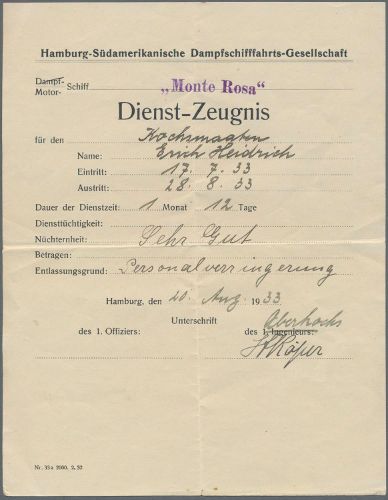 Hamburg-Südamerikanische Dampfschifffahrts-Gesellschaft
Dampf-
Motor- Schiff „Monte Rosa“
Dienst-Zeugnis
für den Kochsmaaten
Name: Erich Heidrich
Eintritt: 17. 7. 33
Austritt: 28. 8. 33
Dauer der Dienstzeit: 1 Monat 12 Tage
Diensttüchtigkeit:
Nüchternheit: Sehr Gut
Betragen:
Entlassungsgrund: Personalverringerung
Hamburg, den 28. Aug. 1933
Unterschrift Oberkochs
des 1. Offiziers: des 1. Ingenieurs:
Nr. 33a 2000. 2. 32